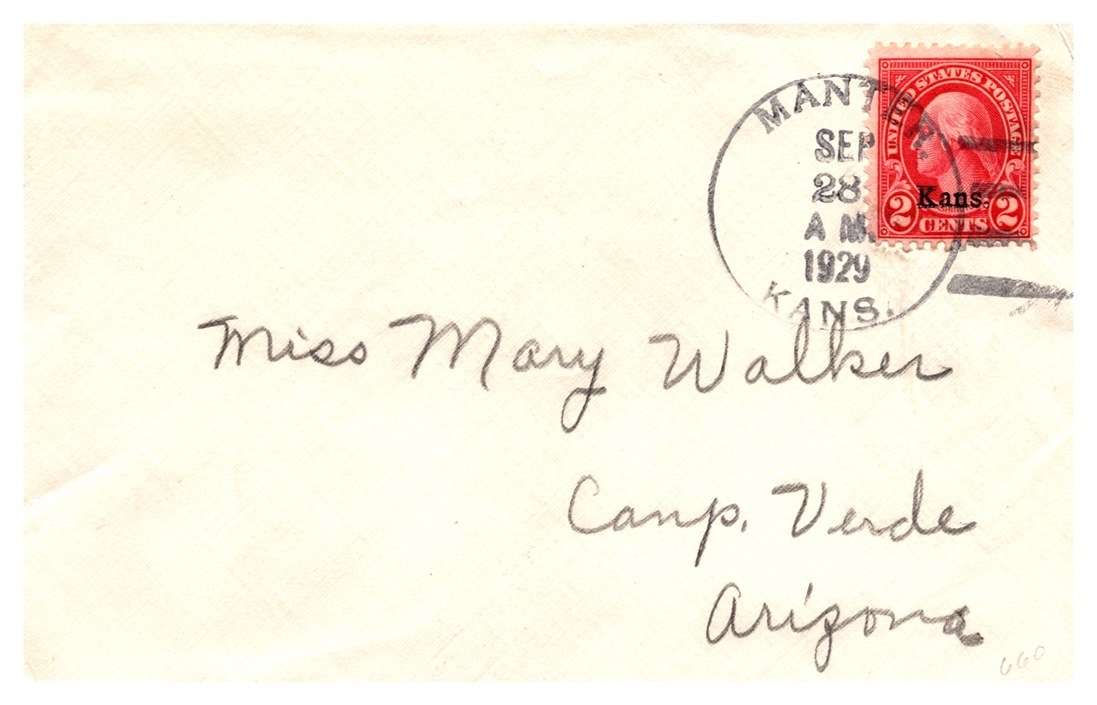 MANTER.
SEP
28
A M.
1929
KANS.
UNITED STATES POSTAGE
Kans.
2 CENTS 2
Miss Mary Walker
Camp. Verde
Arizona
660